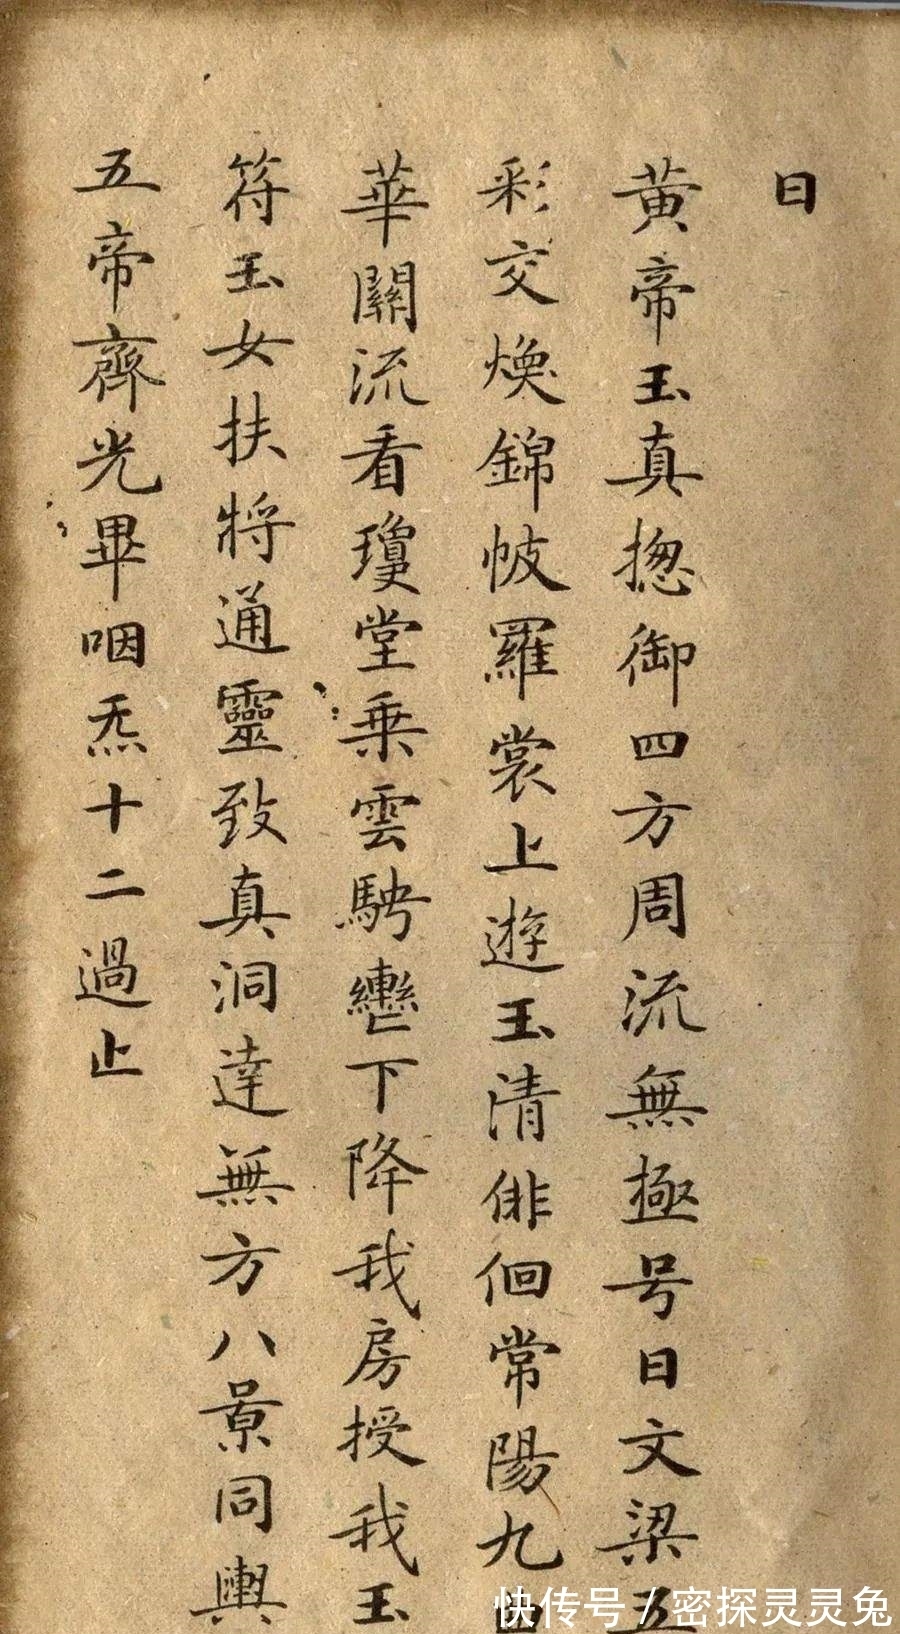 曰
黄帝玉真揔御四方周流無極号曰文梁五
彩交煥錦帔羅裳上遊玉清俳佪常陽九曲
華關流看瓊堂乗雲騁轡下降我房授我玉
符玉女扶將通靈致真洞達無方八景同輿
五帝齊光畢咽炁十二過止
快传号/密探灵灵兔